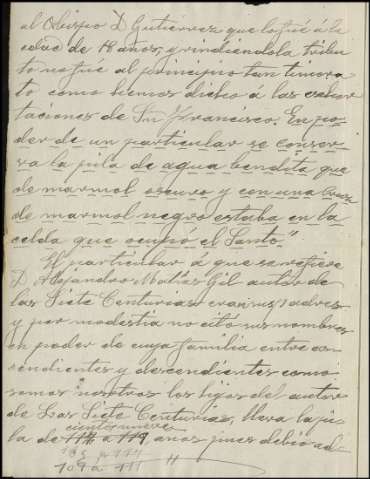 al Obispo D Gutierrez que lo fué á la
edad de 18 años, y rindiendola tribu
to no fué al principio tan timora
to como hemos dicho á las exhor
taciones de Sn Francisco. En po
der de un particular se conser
va la pila de agua bendita que
de marmol oscuro y con una cruz
de marmol negro estaba en la
celda que ocupó el Santo."
El particular á que se refiere
D. Alejandro Matías Gil autor de
las Siete Centurias eran sus padres
y por modestia no citó sus nombres
en poder de cuya familia entre as
cendientes y descendientes como
somos nosotros los hijos del autor
de Las Siete Centurias, lleva la pi
ciento nueve
la de 114 a 119 años pues debió ad-
109 a 111 "